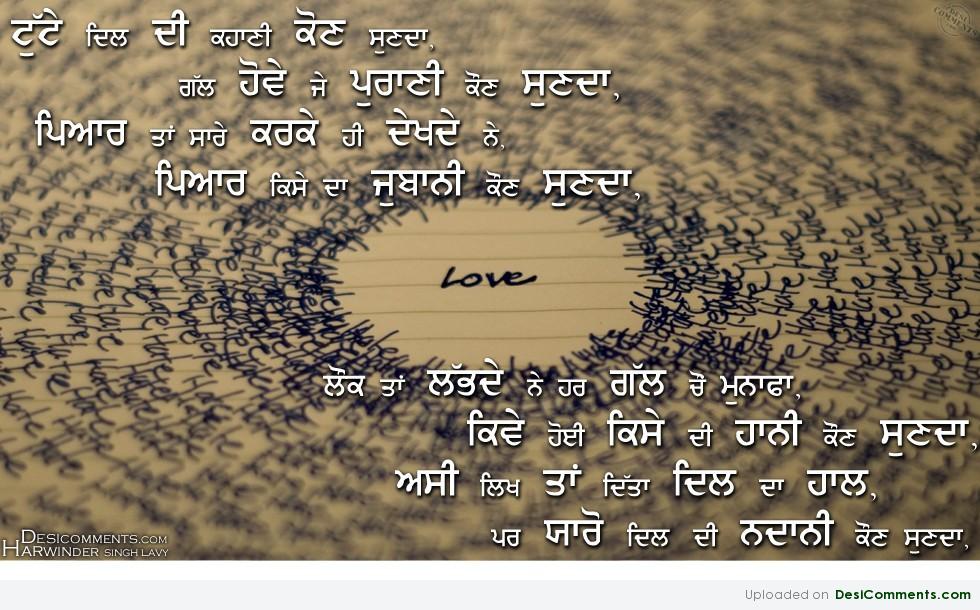 ਟੁੱਟੇ ਦਿਲ ਦੀ ਕਹਾਣੀ ਕੋਣ ਸੁਣਦਾ,
ਗੱਲ ਹੋਵੇ ਜੇ ਪੁਰਾਣੀ ਕੌਣ ਸੁਣਦਾ,
ਪਿਆਰ ਤਾਂ ਸਾਰੇ ਕਰਕੇ ਹੀ ਦੇਖਦੇ ਨੇ,
ਪਿਆਰ ਕਿਸੇ ਦਾ ਜੁਬਾਨੀ ਕੌਣ ਸੁਣਦਾ,
Love
ਲੌਕ ਤਾਂ ਲੱਭਦੇ ਨੇ ਹਰ ਗੱਲ ਚੌ ਮੁਨਾਫਾ,
ਕਿਵੇ ਹੋਈ ਕਿਸੇ ਦੀ ਹਾਨੀ ਕੌਣ ਸੁਣਦਾ,
ਅਸੀ ਲਿਖ ਤਾਂ ਦਿੱਤਾ ਦਿਲ ਦਾ ਹਾਲ,
ਪਰ ਯਾਰੋ ਦਿਲ ਦੀ ਨਦਾਨੀ ਕੌਣ ਸੁਣਦਾ,
DESICOMMENTS.COM
HARWINDER SINGH LAVY
Uploaded on DesiComments.com